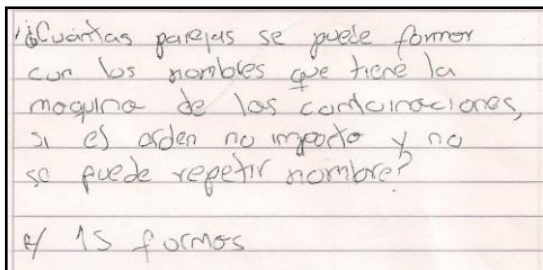 ¿Cuántas parejas se puede formar
con los nombres que tiene la
maquina de las combinaciones,
si el orden no importa y no
se puede repetir nombre?
R/ 15 formas